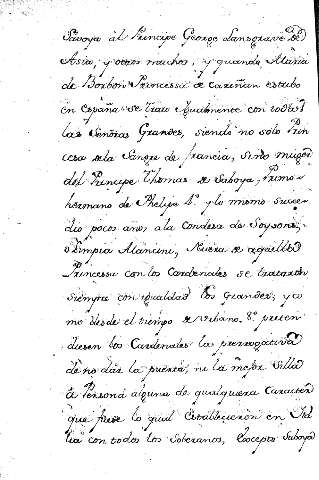 Savoya àl Principe George Lansgrave de
Asia, y otros muchos, y quando Maria
de Borbon Princessa de Cariñan estubo
en españa se trató igualmente con todas
las Señoras Grandes, siendo no solo Prin
cesa de la Sangre de francia, sino muger
del Principe Thomas de Saboya, Primo
hermano de Phelipe 4º y lo mismo suce
dió pocos anos ala condesa de Soysons,
Olimpia Mancini, Nuera de aquella
Princessa con los Cardenales se trataron
siempre con igualdad los Grandes; y co
mo desde el tiempo de Urbano 8º preten
diesen los Cardenales la prerrogativa
de no dar la puerta, ni la mejor Silla
à Persona alguna de qualquiera Caracter
que fuese lo qual establecieron en Ita
lia con todos los Soberanos, Excepto Saboya